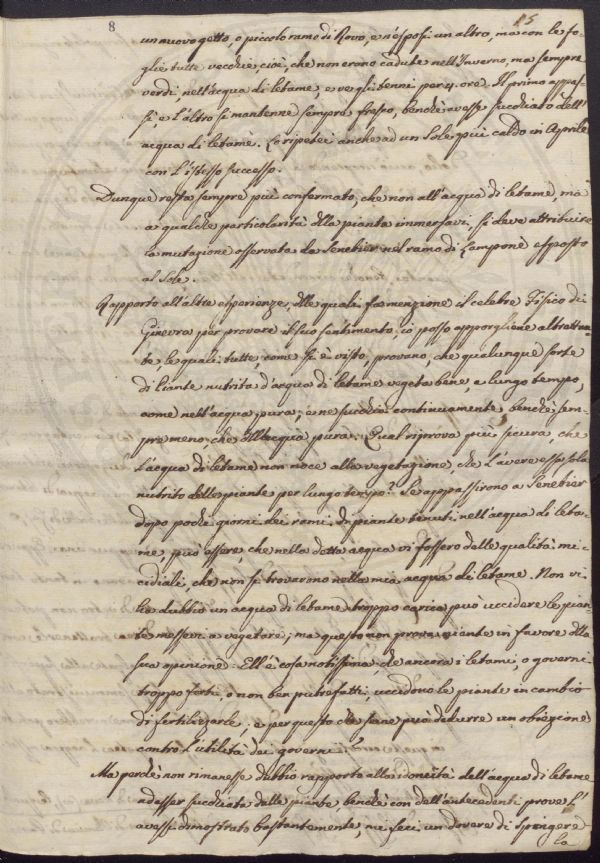 8
15
un nuovo getto, o piccolo ramo di Rovo, e n'esposi un altro, ma con le fo-
glie tutte vecchie, cioè, che non erano cadute nell'Inverno, ma sempre
verdi, nell'acqua di letame, e ve gli tenni per 4. ore. Il primo appas-
sì, e l'altro si mantenne sempre fresco, benchè avesse succhiato dell'
acqua di letame. Lo ripetei anche ad un Sole più caldo in Aprile
con l'istesso successo.
Dunque resta sempre più confermato, che non all'acqua di letame, mà
a qualche particolarità della pianta immersavi, si deve attribuire
la mutazione osservata da Senebier nel ramo di Lampone esposto
al Sole.
Rapporto all'altre esperienze, delle quali fa menzione il celebre Fisico di
Ginevra per provare il suo sentimento, io posso apporgliene altrettan-
te, le quali tutte, come si è visto, provano, che qualunque sorte
di Piante nutrita d'acqua di letame vegeta bene, e lungo tempo,
come nell'acqua pura; e ne succhia continuamente benchè sem-
pre meno, che dell'acqua pura. Qual riprova più sicura, che
l'acqua di letame non noce alla vegetazione che l'avere essa sola
nutrito delle piante per lungo tempo? Se appassirono a Senebier
dopo poche giorni dei rami di piante tenuti nell'acqua di leta-
me, può essere, che nella detta acqua vi fossero delle qualità mi-
cidiali, che non si trovarono nella mia acqua di letame. Non vi
ha dubbio un acqua di letame troppo carica può uccidere le pian-
te messevi a vegetare; ma questo non prova niente in favore della
sua opinione. Ell'è cosa notissima, che ancora i letami, o governi
troppo forti, o non ben putrefatti, uccidono le piante in cambio
di fertilizzarle; e per questo che se ne può dedurre un obiezione
contro l'utilità dei governi?
Ma perchè non rimanesse dubbio rapporto alla idoneità dell'acqua di letame
ad esser succhiata dalle piante benchè con dell'antecedenti prove l'
avessi dimostrato bastantemente, mi feci un dovere di spingere
la